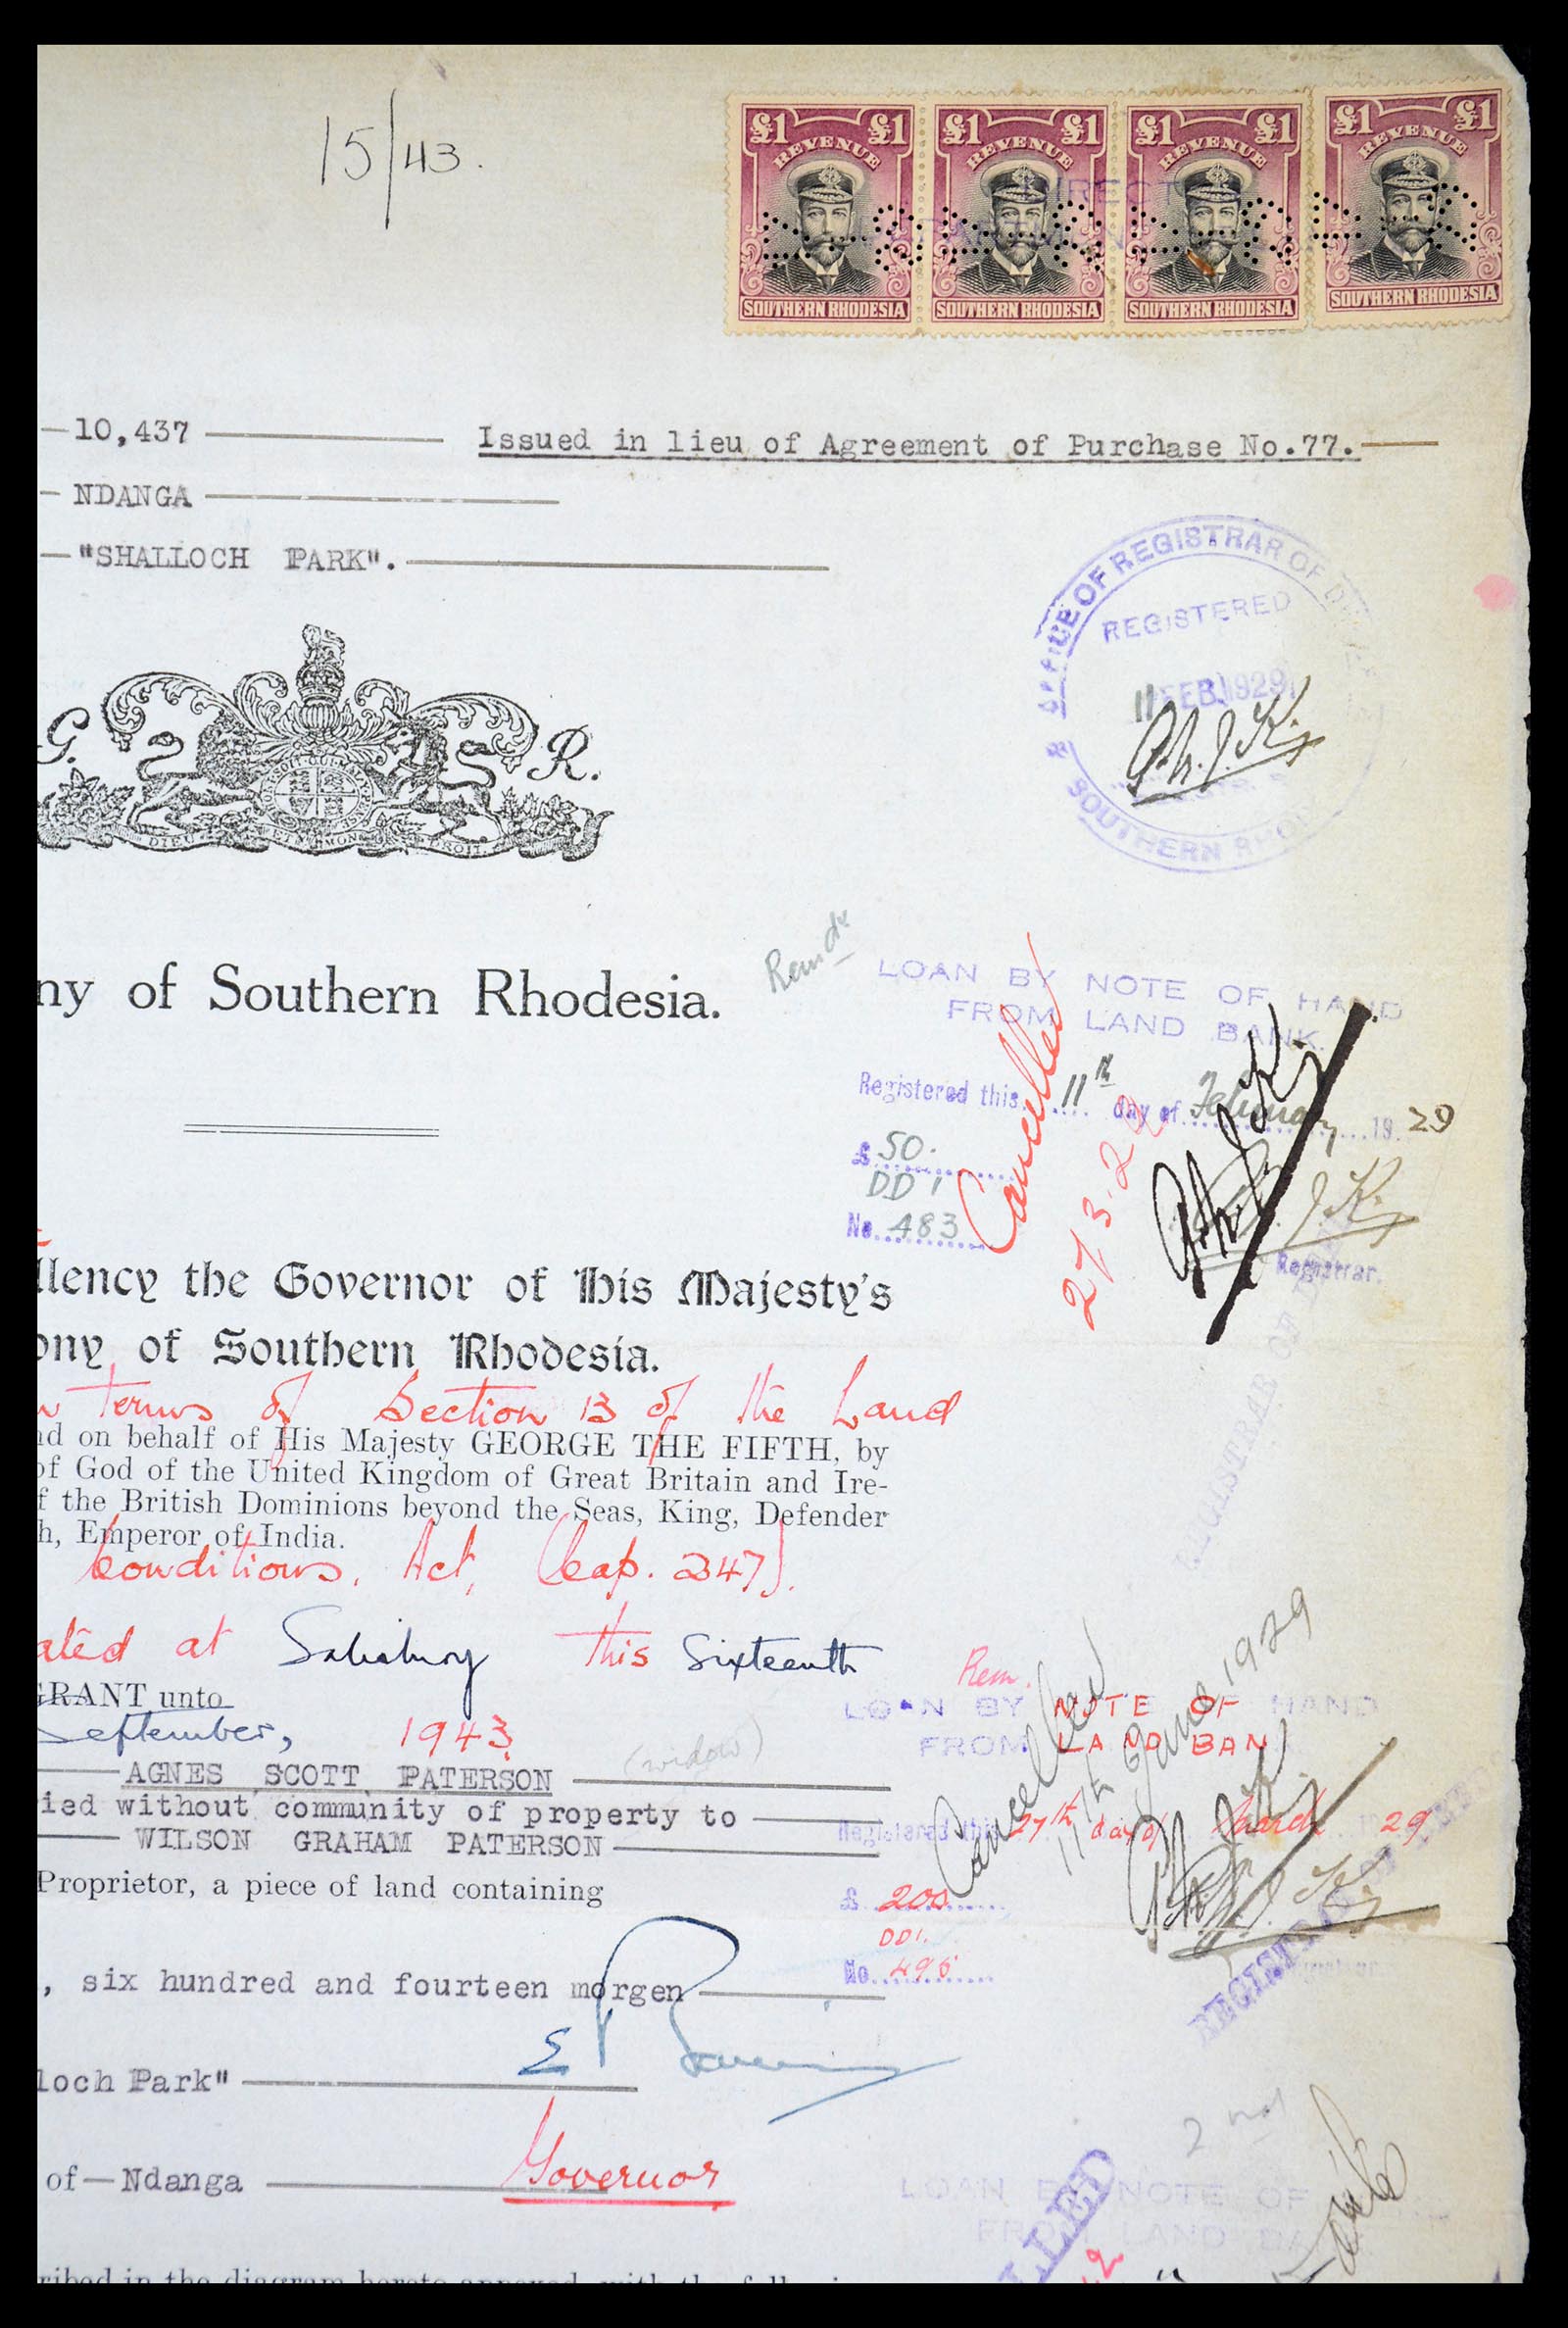 15/43.
£1 £1 £1 £1 £1 £1 £1 £1
REVENUE REVENUE REVENUE REVENUE
DIRECT
SOUTHERN RHODESIA SOUTHERN RHODESIA SOUTHERN RHODESIA SOUTHERN RHODESIA
10,437 Issued in lieu of Agreement of Purchase No.77.
NDANGA
"SHALLOCH PARK".
OFFICE OF REGISTRAR OF
REGISTERED
11 FEB 1929
SOUTHERN RHOD
G. R.
DIEU ET MON DROIT
ny of Southern Rhodesia.
LOAN BY NOTE OF HAND
FROM LAND BANK.
Cancelled
Registered this 11th day of February 1929
£ 50.
DD 1
No. 483
Registrar.
llency the Governor of His Majesty's
ony of Southern Rhodesia.
terms of Section 13 of the Land
nd on behalf of His Majesty GEORGE THE FIFTH, by
of God of the United Kingdom of Great Britain and Ire-
f the British Dominions beyond the Seas, King, Defender
h, Emperor of India.
Conditions. Act, (Cap. 247).
REGISTRAR OF DEEDS
ated at Salisbury this Sixteenth
GRANT unto
September, 1943
Rem.
LOAN BY NOTE OF HAND
FROM LAND BAN
Cancelled
11th June 1929
(widow)
AGNES SCOTT PATERSON
ied without community of property to
WILSON GRAHAM PATERSON
Registered this 27th day of March 29
Proprietor, a piece of land containing
£ 200
DD1.
, six hundred and fourteen morgen
REGISTRAR OF DEEDS
loch Park"
of—Ndanga
Governor
2nd
LOAN BY NOTE OF
FROM LAND BA
LLED
ribed in the diagram hereto annexed, with the